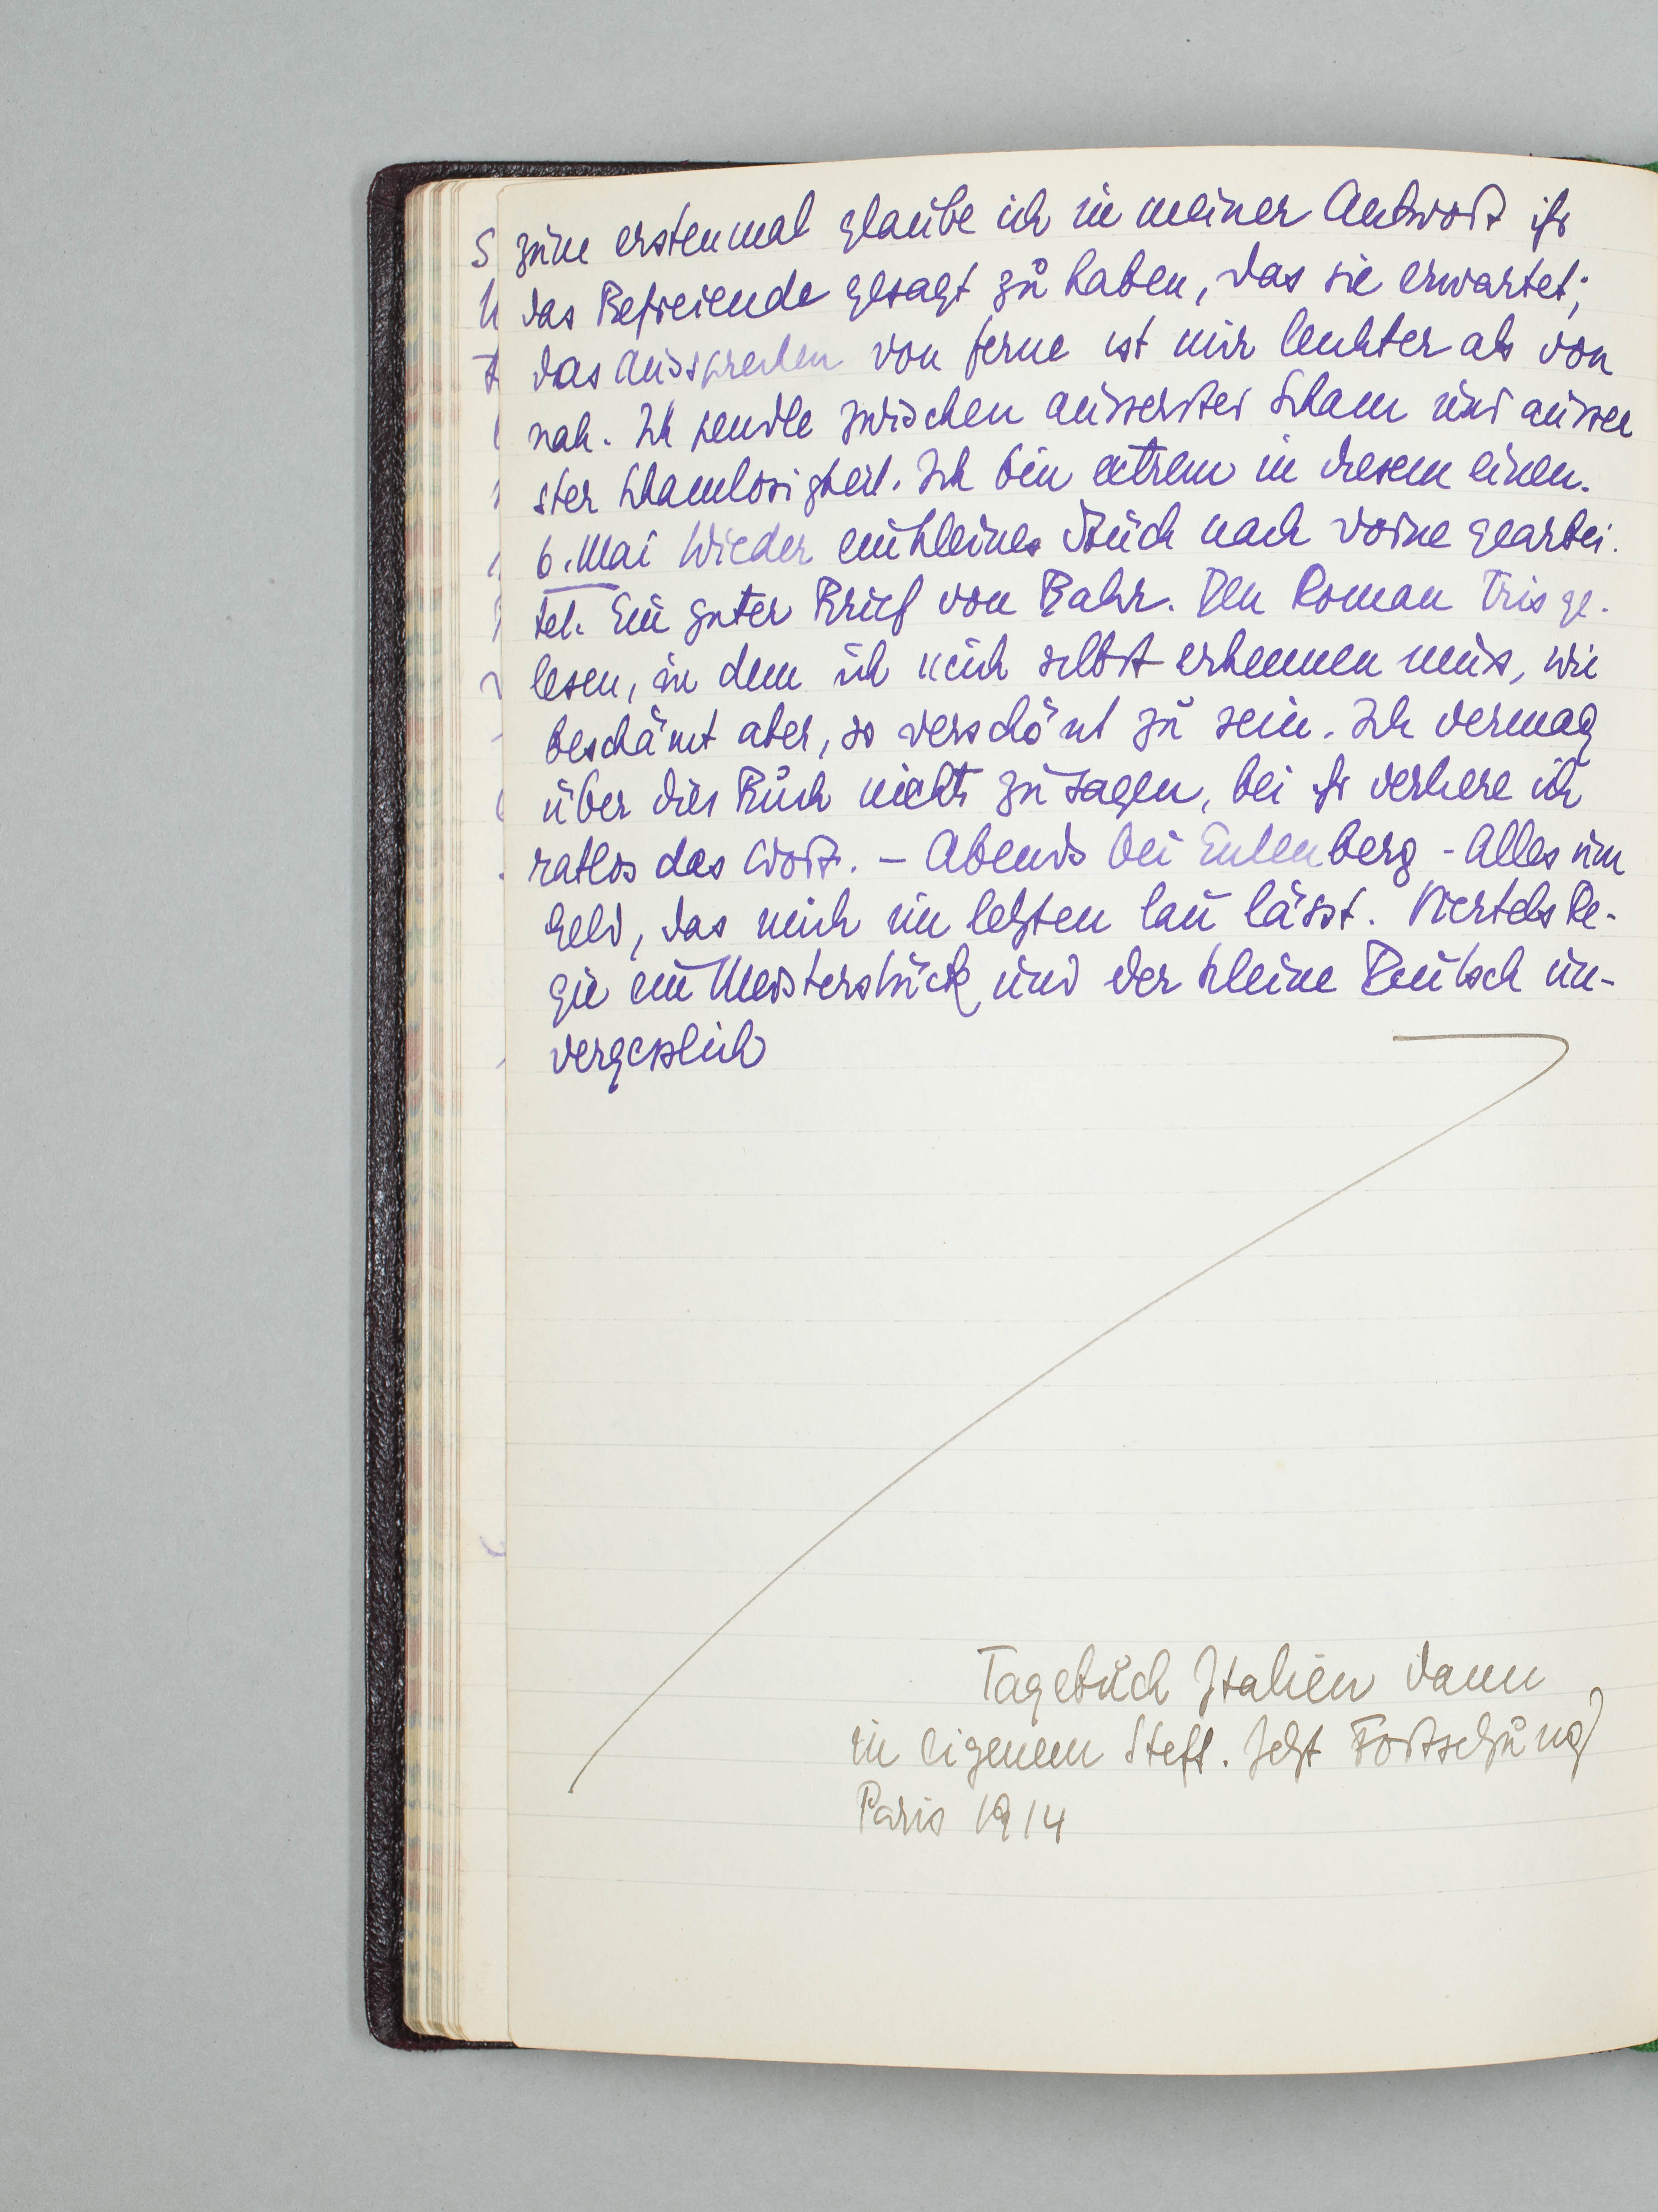 zum erstenmal glaube ich in meiner Antwort ihr
das Befreiende gesagt zu haben, das sie erwartet;
das Aussprechen von ferne ist mir leichter als von
nah. Ich pendle zwischen äusserster Scham und äusser
ster Schamlosigkeit. Ich bin extrem in diesem einen.
6. Mai Wieder ein kleines Stück nach vorne gearbei-
tet. Ein guter Brief von Bahr. Den Roman Tris ge-
lesen, in dem ich mich selbst erkennen muss, wie
beschämt aber, so verschönt zu sein. Ich vermag
über dies Buch nichts zu sagen, bei ihr verliere ich
ratlos das Wort. – Abends bei Eulenberg - Alles um
Geld, das mich im letzten lau lässt. Viertels Re-
gie ein Meisterstück und der kleine Deutsch un-
vergesslich
Tagebuch Italien dann
in eigenem Heft. Jetzt Fortsetzung
Paris 1914